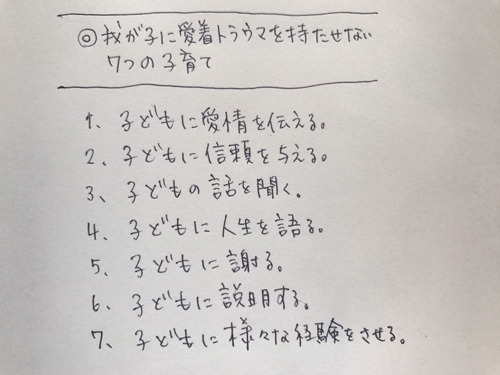 ◎我が子に愛着トラウマを持たせない
7つの子育て
1、子どもに愛情を伝える。
2、子どもに信頼を与える。
3、子どもの話を聞く。
4、子どもに人生を語る。
5、子どもに謝る。
6、子どもに説明する。
7、子どもに様々な経験をさせる。